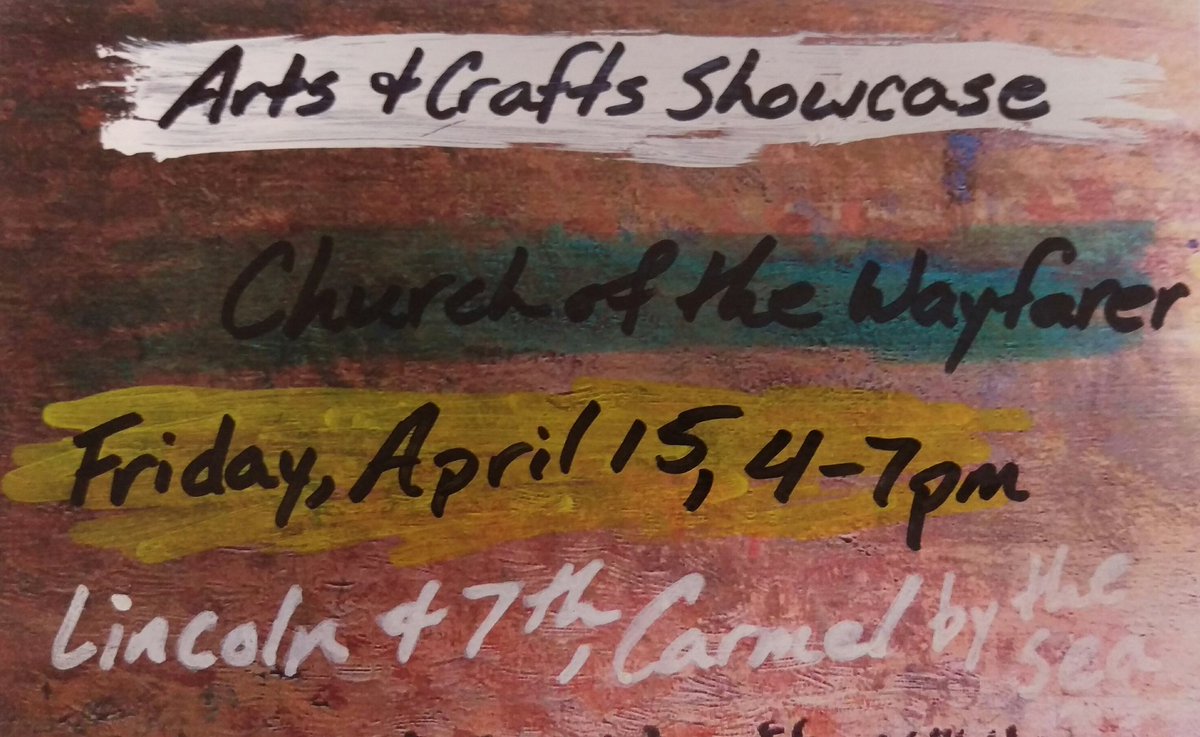 Arts & Crafts Showcase
Church of the Wayfarer
Friday, April 15, 4-7pm
Lincoln & 7th, Carmel by the sea